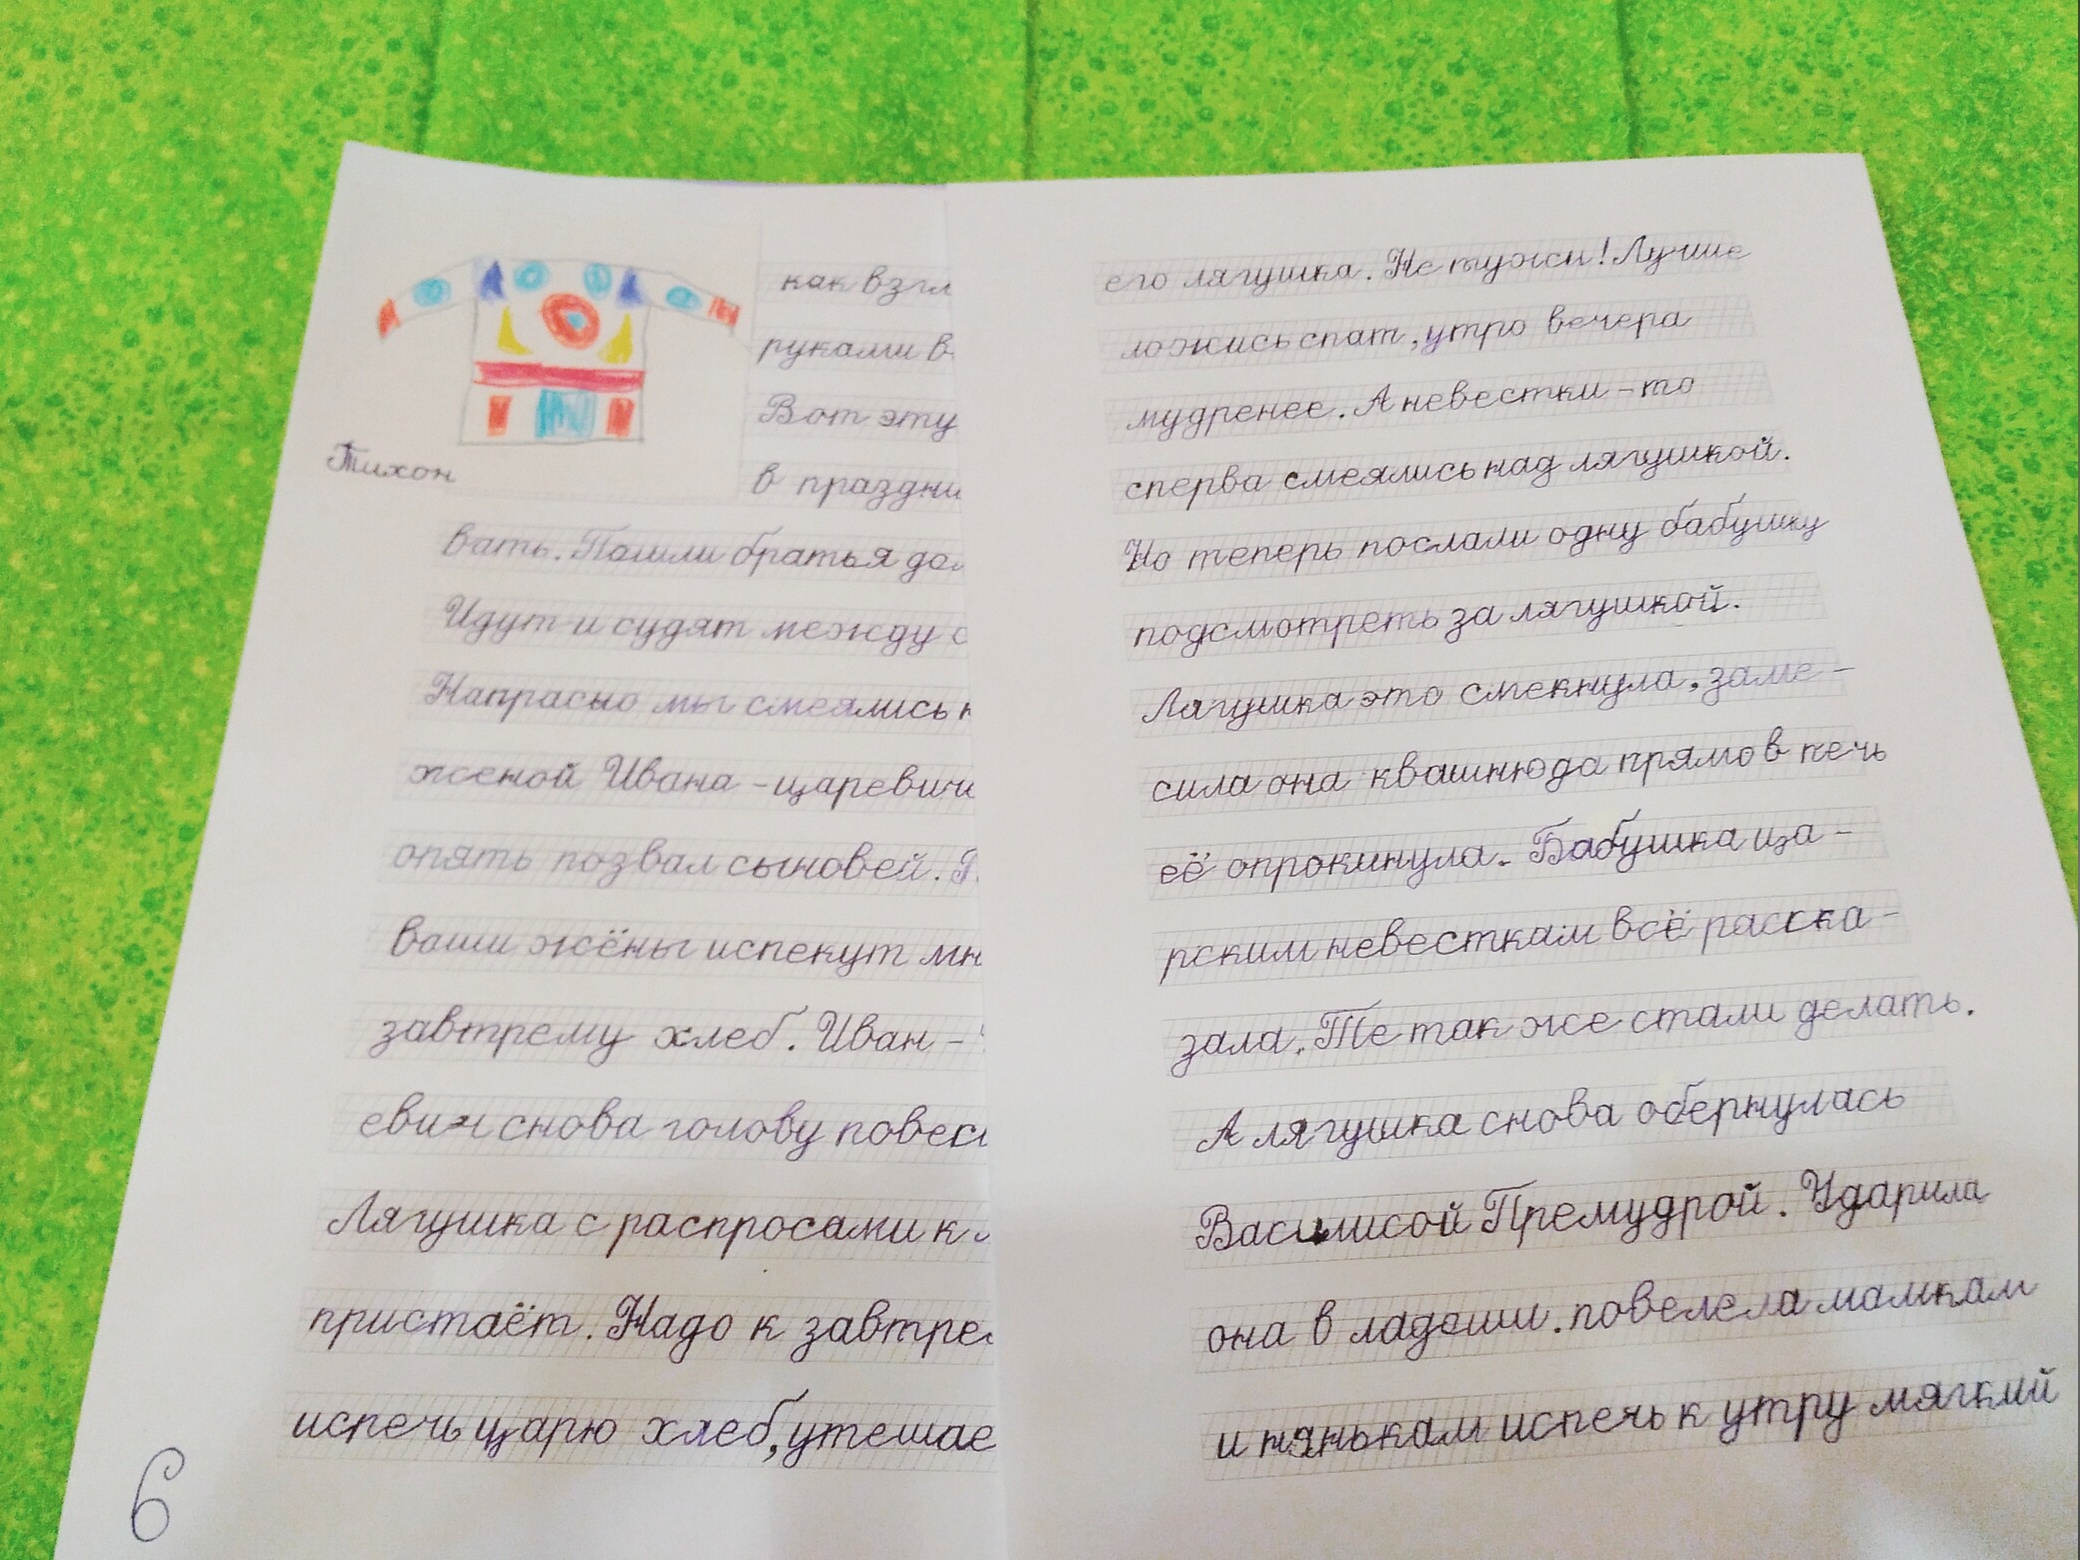 как взгл
руками в
Вот эту
в праздни
Тихон
вать. Пошли братья до
Идут и судят между с
Напрасно мы смеялись н
женой Ивана-царевич
опять позвал сыновей. П
ваши жёны испекут мн
завтрему хлеб. Иван-
евич снова голову повес
Лягушка с распросами к
пристаёт. Надо к завтре
испечь царю хлеб, утешае
6
его лягушка. Не тужи! Лучше
ложись спат, утро вечера
мудренее. А невестки-то
сперва смеялись над лягушкой.
Но теперь послали одну бабушку
подсмотреть за лягушкой.
Лягушка это смекнула, заме-
сила она квашню да прямо в печь
её опрокинула. Бабушка ца-
рским невесткам всё расска-
зала. Те так же стали делать.
А лягушка снова обернулась
Василисой Премудрой. Ударила
она в ладоши. повелела мамкам
и нянькам испечь к утру мягкий